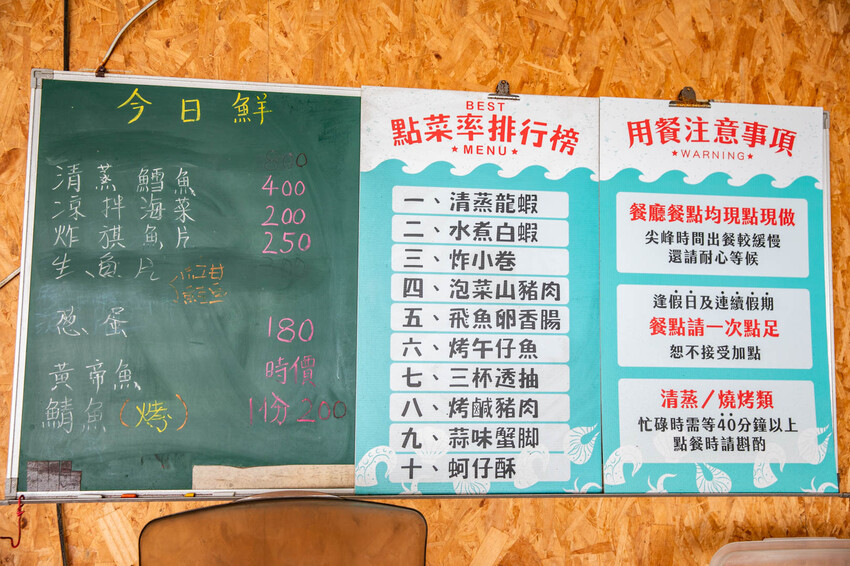 今日鮮
清蒸鱈魚 400
涼拌海菜 200
炸旗魚片 250
生魚片 紅甘
蔥蛋 180
黃帝魚 時價
鯖魚(烤) 1份200
BEST
點菜率排行榜
★MENU★
一、清蒸龍蝦
二、水煮白蝦
三、炸小卷
四、泡菜山豬肉
五、飛魚卵香腸
六、烤午仔魚
七、三杯透抽
八、烤鹹豬肉
九、蒜味蟹脚
十、蚵仔酥
用餐注意事項
★WARNING★
餐廳餐點均現點現做
尖峰時間出餐較緩慢
還請耐心等候
逢假日及連續假期
餐點請一次點足
恕不接受加點
清蒸/燒烤類
忙碌時需等40分鐘以上
點餐時請斟酌